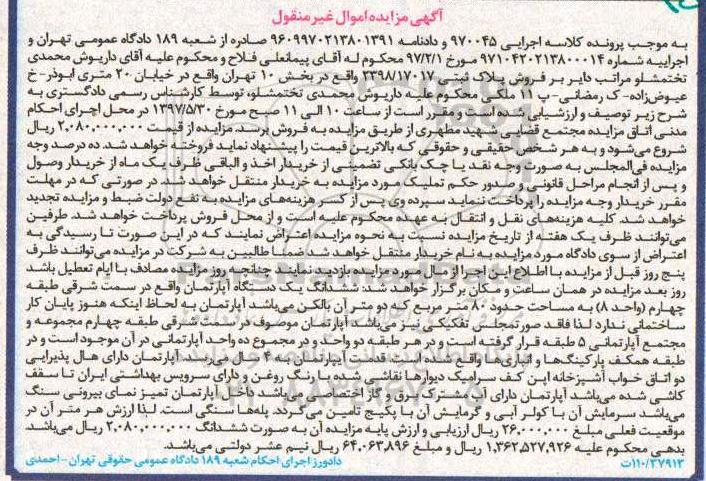 آگهی مزایده اموال غیر منقول
به موجب پرونده کلاسه اجرایی ۹۷۰۰۴۵ و دادنامه ۹۶۰۹۹۷۰۲۱۳۸۰۱۳۹۱ صادره از شعبه ۱۸۹ دادگاه عمومی تهران و
اجراییه شماره ۹۷۱۰۴۲۰۲۱۳۸۰۰۰۱۴ مورخ ۹۷/۲/۱ محکوم له آقای پیمانعلی فلاح و محکوم علیه آقای داریوش محمدی
تختمشلو مراتب دایر بر فروش پلاک ثبتی ۲۳۹۸/۱۷۰۱۷ واقع در بخش ۱۰ تهران واقع در خیابان ۲۰ متری ابوذر-خ
عیوض‌زاده- ک رمضانی-پ ۱۱ ملکی محکوم علیه داریوش محمدی تختمشلو، توسط کارشناس رسمی دادگستری به
شرح زیر توصیف و ارزشیابی شده است و مقرر است از ساعت ۱۰ الی ۱۱ صبح مورخ ۱۳۹۷/۵/۳۰ در محل اجرای احکام
مدنی اتاق مزایده مجتمع قضایی شهید مطهری از طریق مزایده به فروش برسد. مزایده از قیمت ۲،۰۸۰،۰۰۰،۰۰۰ ریال
شروع می‌شود و به هر شخص حقیقی و حقوقی که بالاترین قیمت را پیشنهاد نماید فروخته خواهد شد. ده درصد وجه
مزایده فی‌المجلس به صورت وجه نقد یا چک بانکی تضمینی از خریدار اخذ و الباقی ظرف یک ماه از خریدار وصول
و پس از انجام مراحل قانونی و صدور حکم تملیک مورد مزایده به خریدار منتقل خواهد شد. در صورتی که در مهلت
مقرر خریدار وجه مزایده را پرداخت ننماید سپرده وی پس از کسر هزینه‌های مزایده به نفع دولت ضبط و مزایده تجدید
خواهد شد. کلیه هزینه‌های نقل و انتقال به عهده محکوم علیه است و از محل فروش پرداخت خواهد شد. طرفین
می‌توانند ظرف یک هفته از تاریخ مزایده نسبت به نحوه مزایده اعتراض نمایند که در این صورت تا رسیدگی به
اعتراض از سوی دادگاه مورد مزایده به نام خریدار منتقل نخواهد شد ضمنا طالبین به شرکت در مزایده می‌توانند ظرف
پنج روز قبل از مزایده با اطلاع این اجرا از مال مورد مزایده بازدید نمایند چنانچه روز مزایده مصادف با ایام تعطیل باشد
روز بعد مزایده در همان ساعت و مکان برگزار خواهد شد: ششدانگ یک دستگاه آپارتمان واقع در سمت شرقی طبقه
چهارم (واحد ۸) به مساحت حدود ۸۰ متر مربع که دو متر آن بالکن می‌باشد آپارتمان به لحاظ اینکه هنوز پایان کار
ساختمانی ندارد لذا فاقد صورتمجلس تفکیکی نیز می‌باشد آپارتمان موصوف در سمت شرقی طبقه چهارم مجموعه و
مجتمع آپارتمانی ۵ طبقه قرار گرفته است و در هر طبقه دو واحد و در مجموع ده واحد آپارتمانی در آن موجود است و در
طبقه همکف پارکینگ‌ها و انباری‌ها واقع شده است قدمت آپارتمان ۴ سال می‌باشد آپارتمان دارای هال پذیرایی
دو اتاق خواب آشپزخانه اپن کف سرامیک دیوارها نقاشی شده با رنگ روغن و دارای سرویس بهداشتی ایران تا سقف
کاشی شده می‌باشد آپارتمان دارای آب مشترک برق و گاز اختصاصی می‌باشد داخل آپارتمان تمیز نمای بیرونی سنگ
می‌باشد سرمایش آن با کولر آبی و گرمایش آن با پکیج تامین می‌گردد. پله‌ها سنگی است. لذا ارزش هر متر آن در
موقعیت فعلی مبلغ ۲۶،۰۰۰،۰۰۰ ریال ارزیابی و ارزش پایه مزایده آن به صورت ششدانگ ۲،۰۸۰،۰۰۰،۰۰۰ ریال می‌باشد.
بدهی محکوم علیه ۱،۳۶۲،۵۲۷،۹۲۶ ریال و مبلغ ۶۴،۰۶۳،۸۹۶ ریال نیم عشر دولتی می‌باشد.
۱۱۰/۳۷۹۱۳ت
دادورز اجرای احکام شعبه ۱۸۹ دادگاه عمومی حقوقی تهران - احمدی